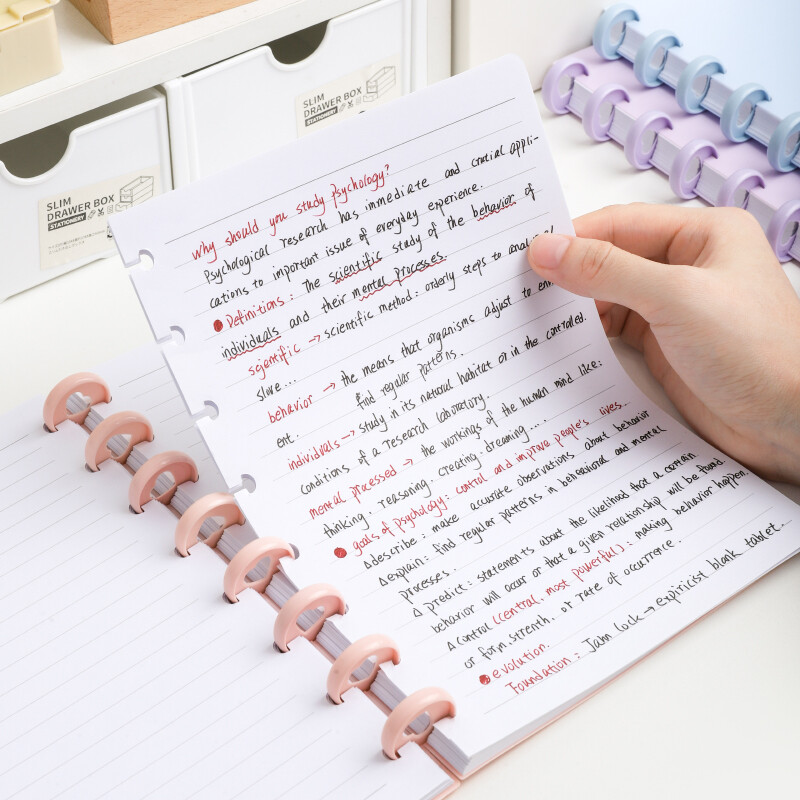 SLIM
DRAWER BOX
STATIONERY
SLIM
DRAWER BOX
STATIONERY
Why should you study Psychology?
Psychological research has immediate and crucial appli-
cations to important issue of everyday experience.
Definitions: The scientific study of the behavior of
individuals and their mental processes.
scientific → scientific method: orderly steps to
slove...
behavior → the means that organisms adjust to
ent. find regular patterns.
individuals → study in its natural habitat or in the controlled.
conditions of a research laboratory.
mental processed → the workings of the human mind like:
thinking. reasoning. creating. dreaming....
goals of psychology: control and improve people's lives...
△describe: make accurate observations about behavior
△explain: find regular patterns in behavioral and mental
processes.
△ predict: statements about the likelihood that a certain
behavior will occur or that a given relationship will be found.
△control (central, most powerful): making behavior happen.
or form. strenth. or rate of occurrence.
evolution.
Foundation: Jam lock → expiricist blank tablet...